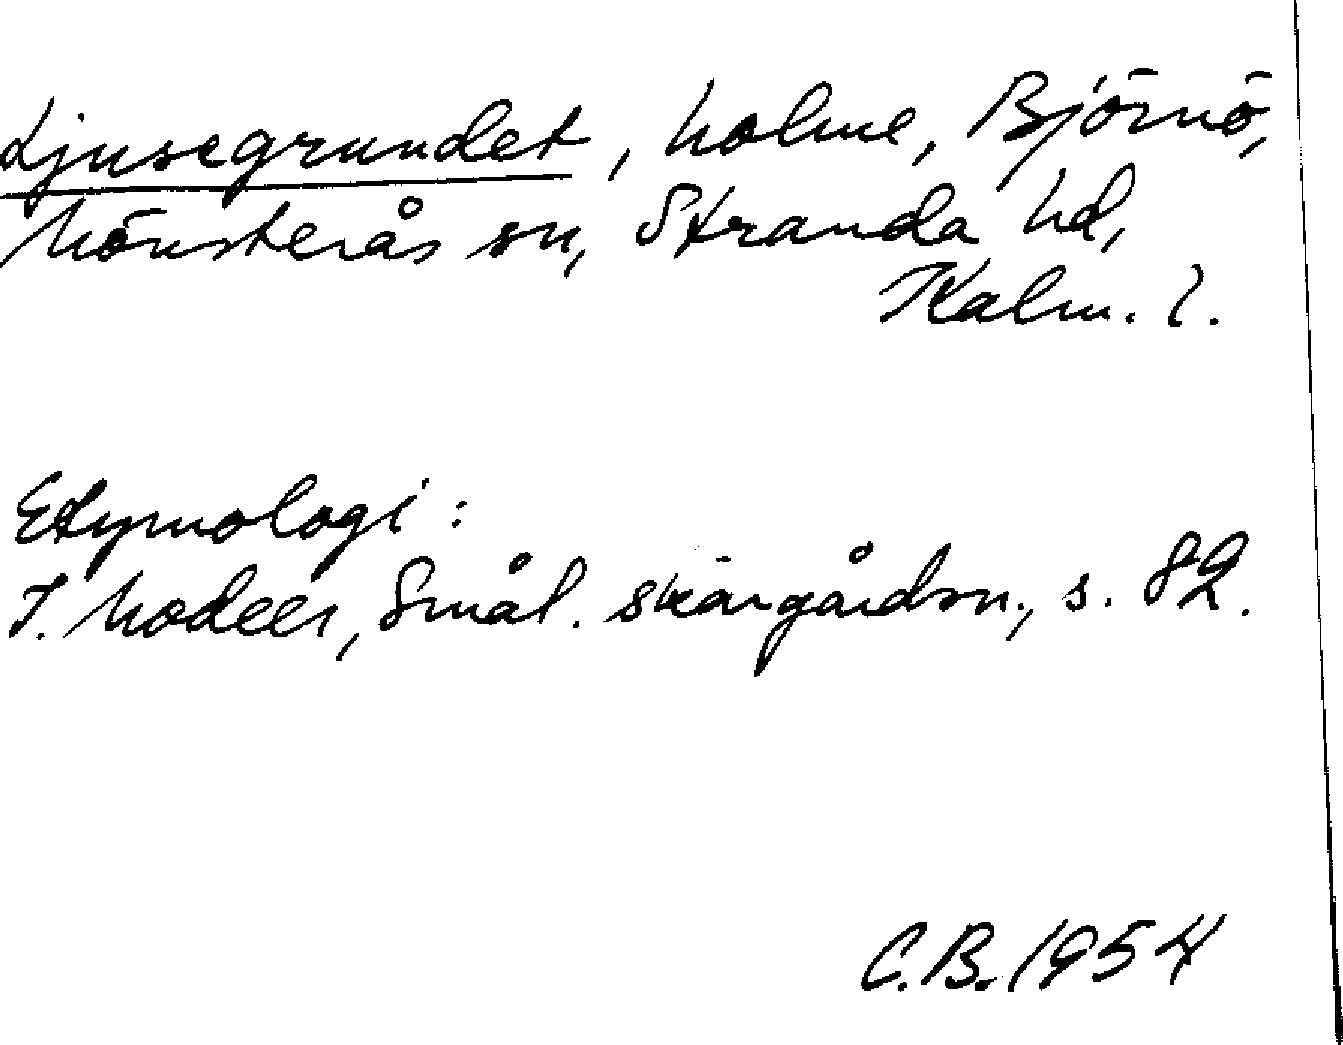 Ljusegrundet, holme, Björnö,
Mönsterås sn, Stranda hd,
Kalm. l.
Etymologi:
I. Modeer, Smål. skärgårdsn., s. 82.
C.B. 1954